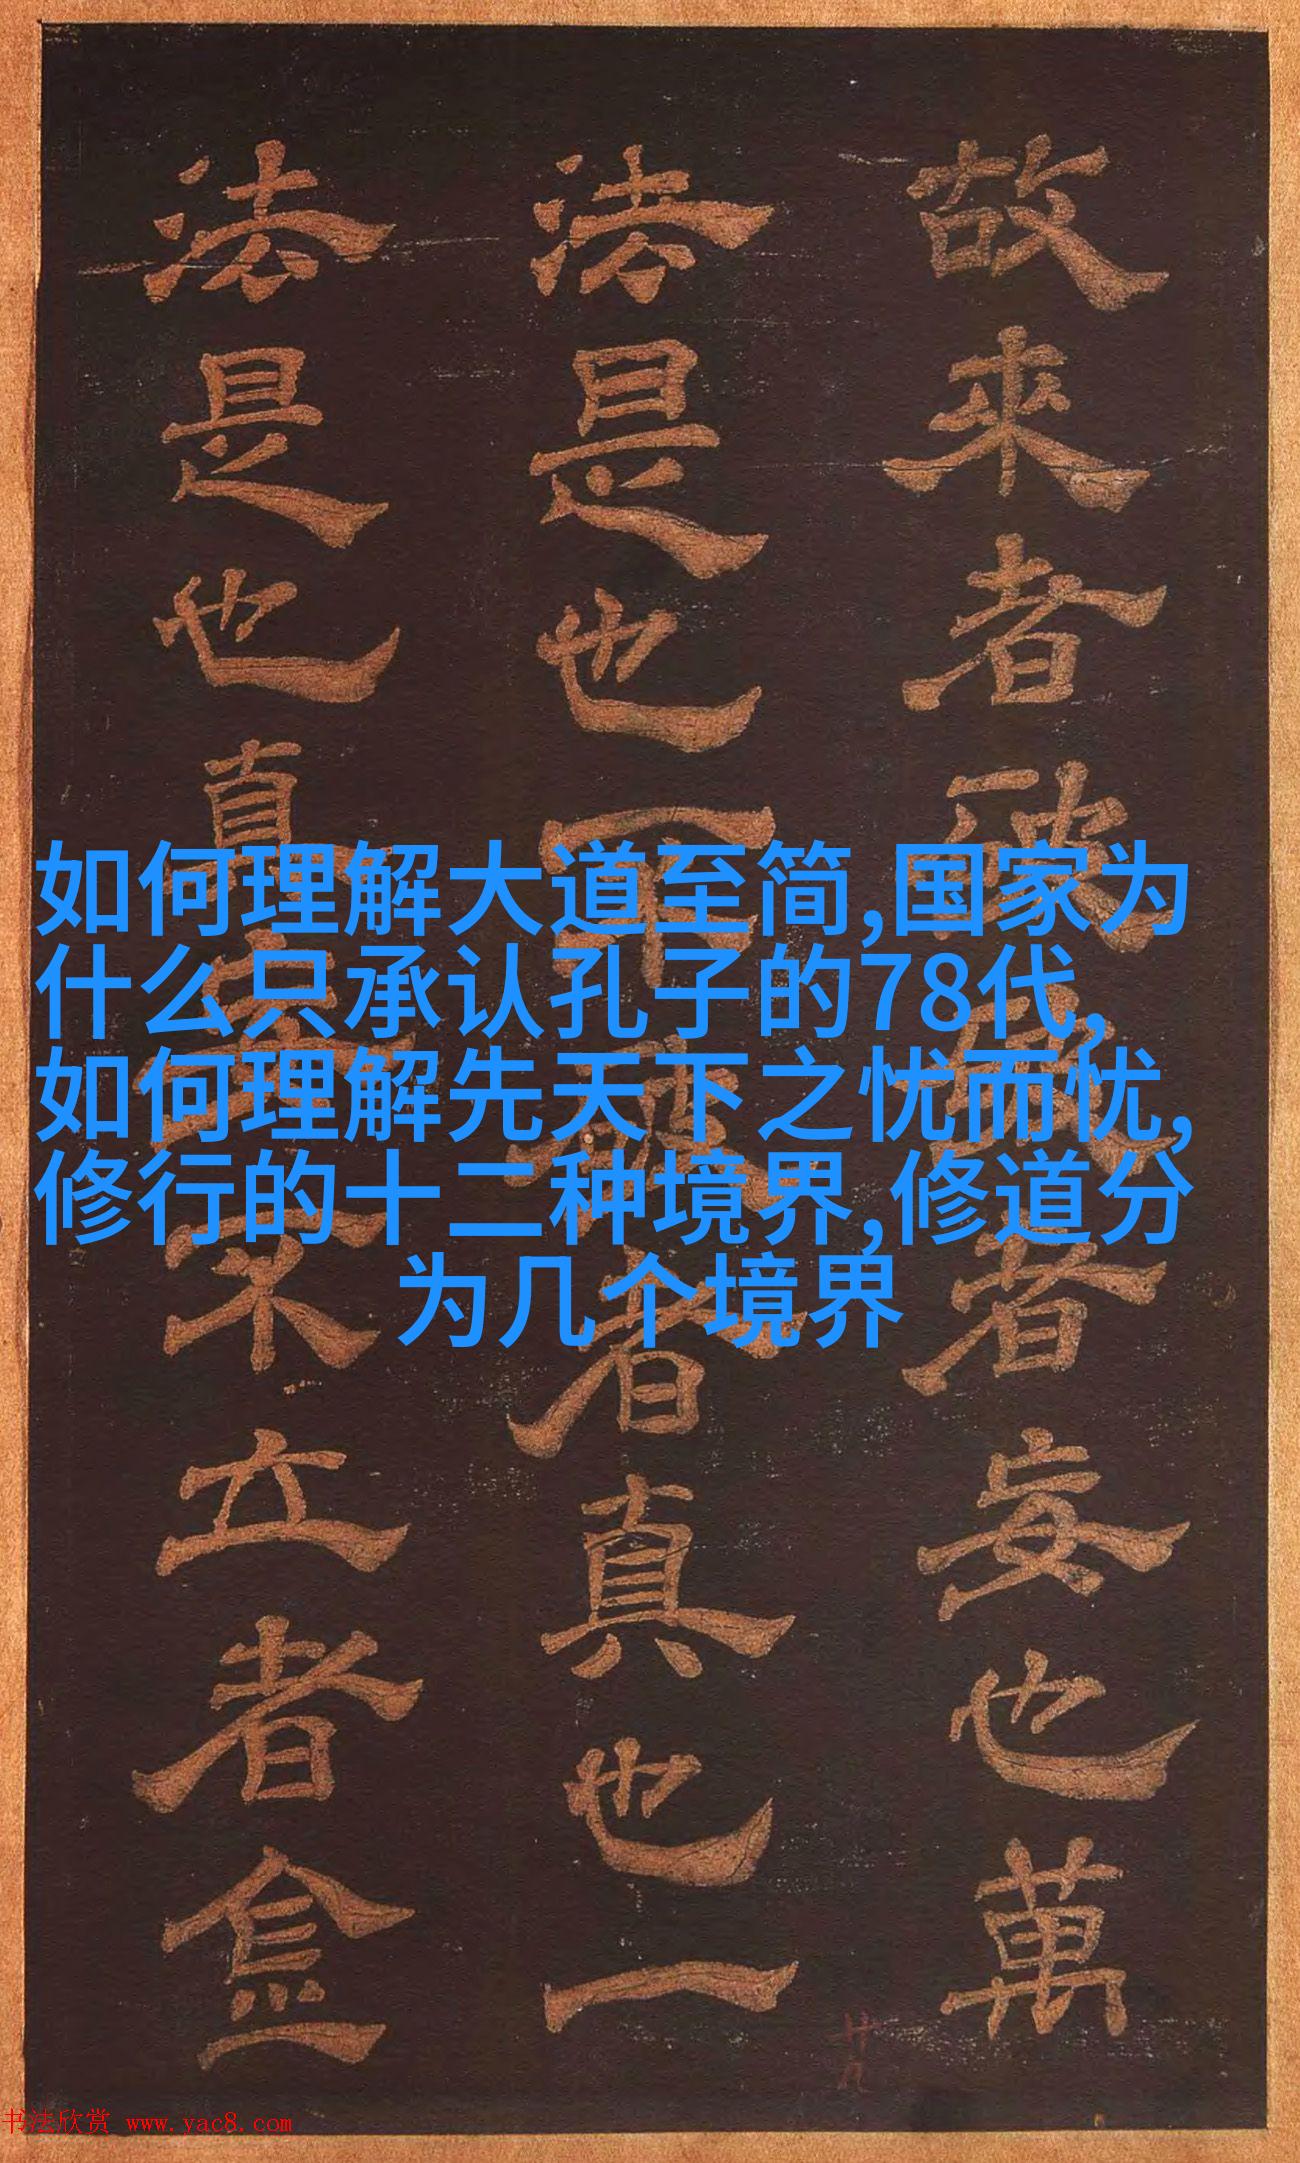 故来者殃風者妄也萬
法是也不韍者真也一
法是也真妄不立者僉
如何理解大道至简,国家为
什么只承认孔子的78代,
如何理解先天下之忧而忧,
修行的十二种境界,修道分
为几个境界
廿九
书法欣赏 www.yac8.com